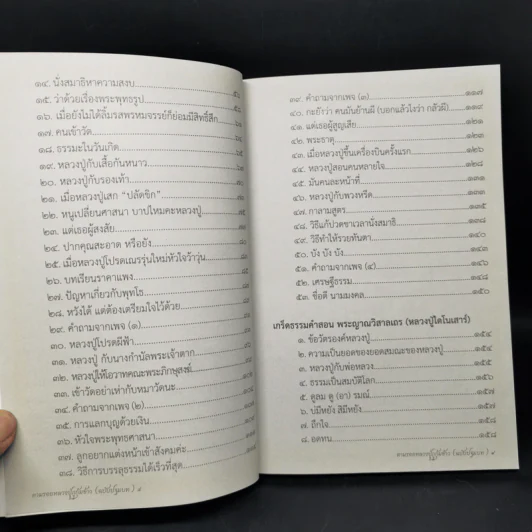 ๑๔. นั่งสมาธิหาความสงบ
๑๕. ว่าด้วยเรื่องพระพุทธรูป
๑๖. เมื่อยังไม่ได้ลิ้มรสพรหมจรรย์ก็ย่อมมีสิทธิ์สึก
๑๗. คนเข้าวัด
๑๘. ธรรมะในวันเกิด
๑๙. หลวงปู่กับเสื้อกันหนาว
๒๐. หลวงปู่กับรองเท้า
๒๑. เมื่อหลวงปู่เสก "ปลัดขิก"
๒๒. หนูเปลี่ยนศาสนา บาปไหมคะหลวงปู่
๒๓. แต่เธอผู้สงสัย
๒๔. ปากคุณสะอาด หรือยัง
๒๕. เมื่อหลวงปู่โปรดเณรรุ่นใหม่หัวใจว้าวุ่น
๒๖. บทเรียนราคาแพง
๒๗. ปัญหาเกี่ยวกับพุทโธ
๒๘. หวังได้ แต่ต้องเตรียมใจไว้ด้วย
๒๙. คำถามจากเพจ (๑)
๓๐. หลวงปู่โปรดผีฟ้า
๓๑. หลวงปู่ กับนางกำนัลพระเจ้าตาก
๓๒. หลวงปู่ให้โอวาทคณะพระภิกษุสงฆ์
๓๓. เข้าวัดอย่าเห่ากับหมาวัดนะ
๓๔. คำถามจากเพจ (๒)
๓๕. การแลกบุญด้วยเงิน
๓๖. หัวใจพระพุทธศาสนา
๓๗. ลูกอยากแต่งหน้าเข้าสังคมค่ะ
๓๘. วิธีการบรรลุธรรมได้เร็วที่สุด
๓๙. คำถามจากเพจ (๓) ๑๑๗
๔๐. กะอีว่า คนมันบ้านผี (บอกแล้วไงว่า กลัวผี) ๑๑๙
๔๑. แด่เธอผู้สูญเสีย ๑๒๑
๔๒. พระธาตุ ๑๒๓
๔๓. เมื่อหลวงปู่ขึ้นเครื่องบินครั้งแรก ๑๒๕
๔๔. หลวงปู่สอนคนหลายใจ ๑๒๘
๔๕. มันคนละหน้าที่ ๑๓๑
๔๖. หลวงปู่กับพวงหรีด ๑๓๓
๔๗. กาลามสูตร ๑๓๕
๔๘. วิธีแก้ปวดขาเวลานั่งสมาธิ ๑๓๘
๔๙. วิธีทำให้รวยทันตา ๑๔๐
๕๐. บัง บัง บัง ๑๔๓
๕๑. คำถามจากเพจ (๔) ๑๔๖
๕๒. เศรษฐีธรรม ๑๔๘
๕๓. ชื่อดี นามมงคล ๑๕๐
เกร็ดธรรมคำสอน พระญาณวิสาลเถร (หลวงปู่ไดโนเสาร์)
๑. ข้อวัตรองค์หลวงปู่ ๑๕๔
๒. ความเป็นยอดของยอดสมณะของหลวงปู่ ๑๕๕
๓. หลวงปู่กับพ่อหลวง ๑๕๕
๔. ธรรมเป็นสมบัติโลก ๑๕๖
๕. ดูลม ดู (อา) รมณ์ ๑๕๗
๖. บ่มีหยัง สิมีหยัง ๑๕๗
๗. ถึกใจ ๑๕๗
๘. อดทน ๑๕๘